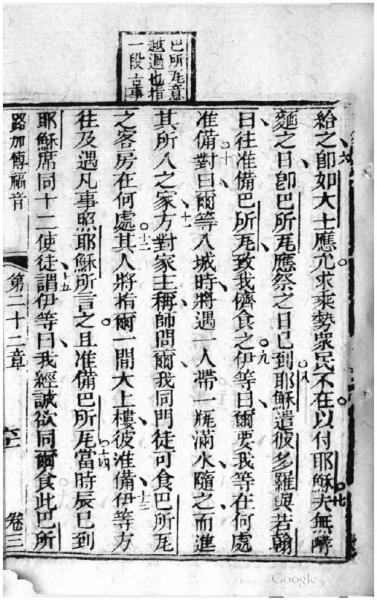 巴所瓦意
越過也指
一段古事
給之即如大士應允求乘勢眾民不在以付耶穌夫無酵
麵之日即巴所瓦應祭之日已到耶穌遣彼多羅與若翰
曰往准備巴所瓦致我儕食之伊等曰爾要我等在何處
准備對曰爾等入城時將遇一人帶一瓶滿水隨之而進
其所入之家方對家主稱師問爾我同門徒可食巴所瓦
之客房在何處其人將指爾一間大上樓彼准備伊等方
往及遇凡事照耶穌所言之且准備巴所瓦當時辰已到
耶穌席同十二使徒謂伊等曰我經誠欲同爾食此巴所
路加傳福音 第二十二章 卷三
六
七
八
九
十
十一
十二
十三
十四
十五
Google